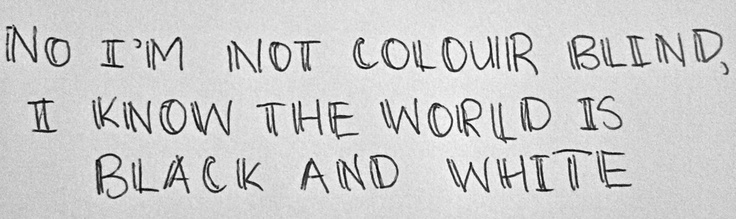 NO I'M NOT COLOUR BLIND,
I KNOW THE WORLD IS
BLACK AND WHITE